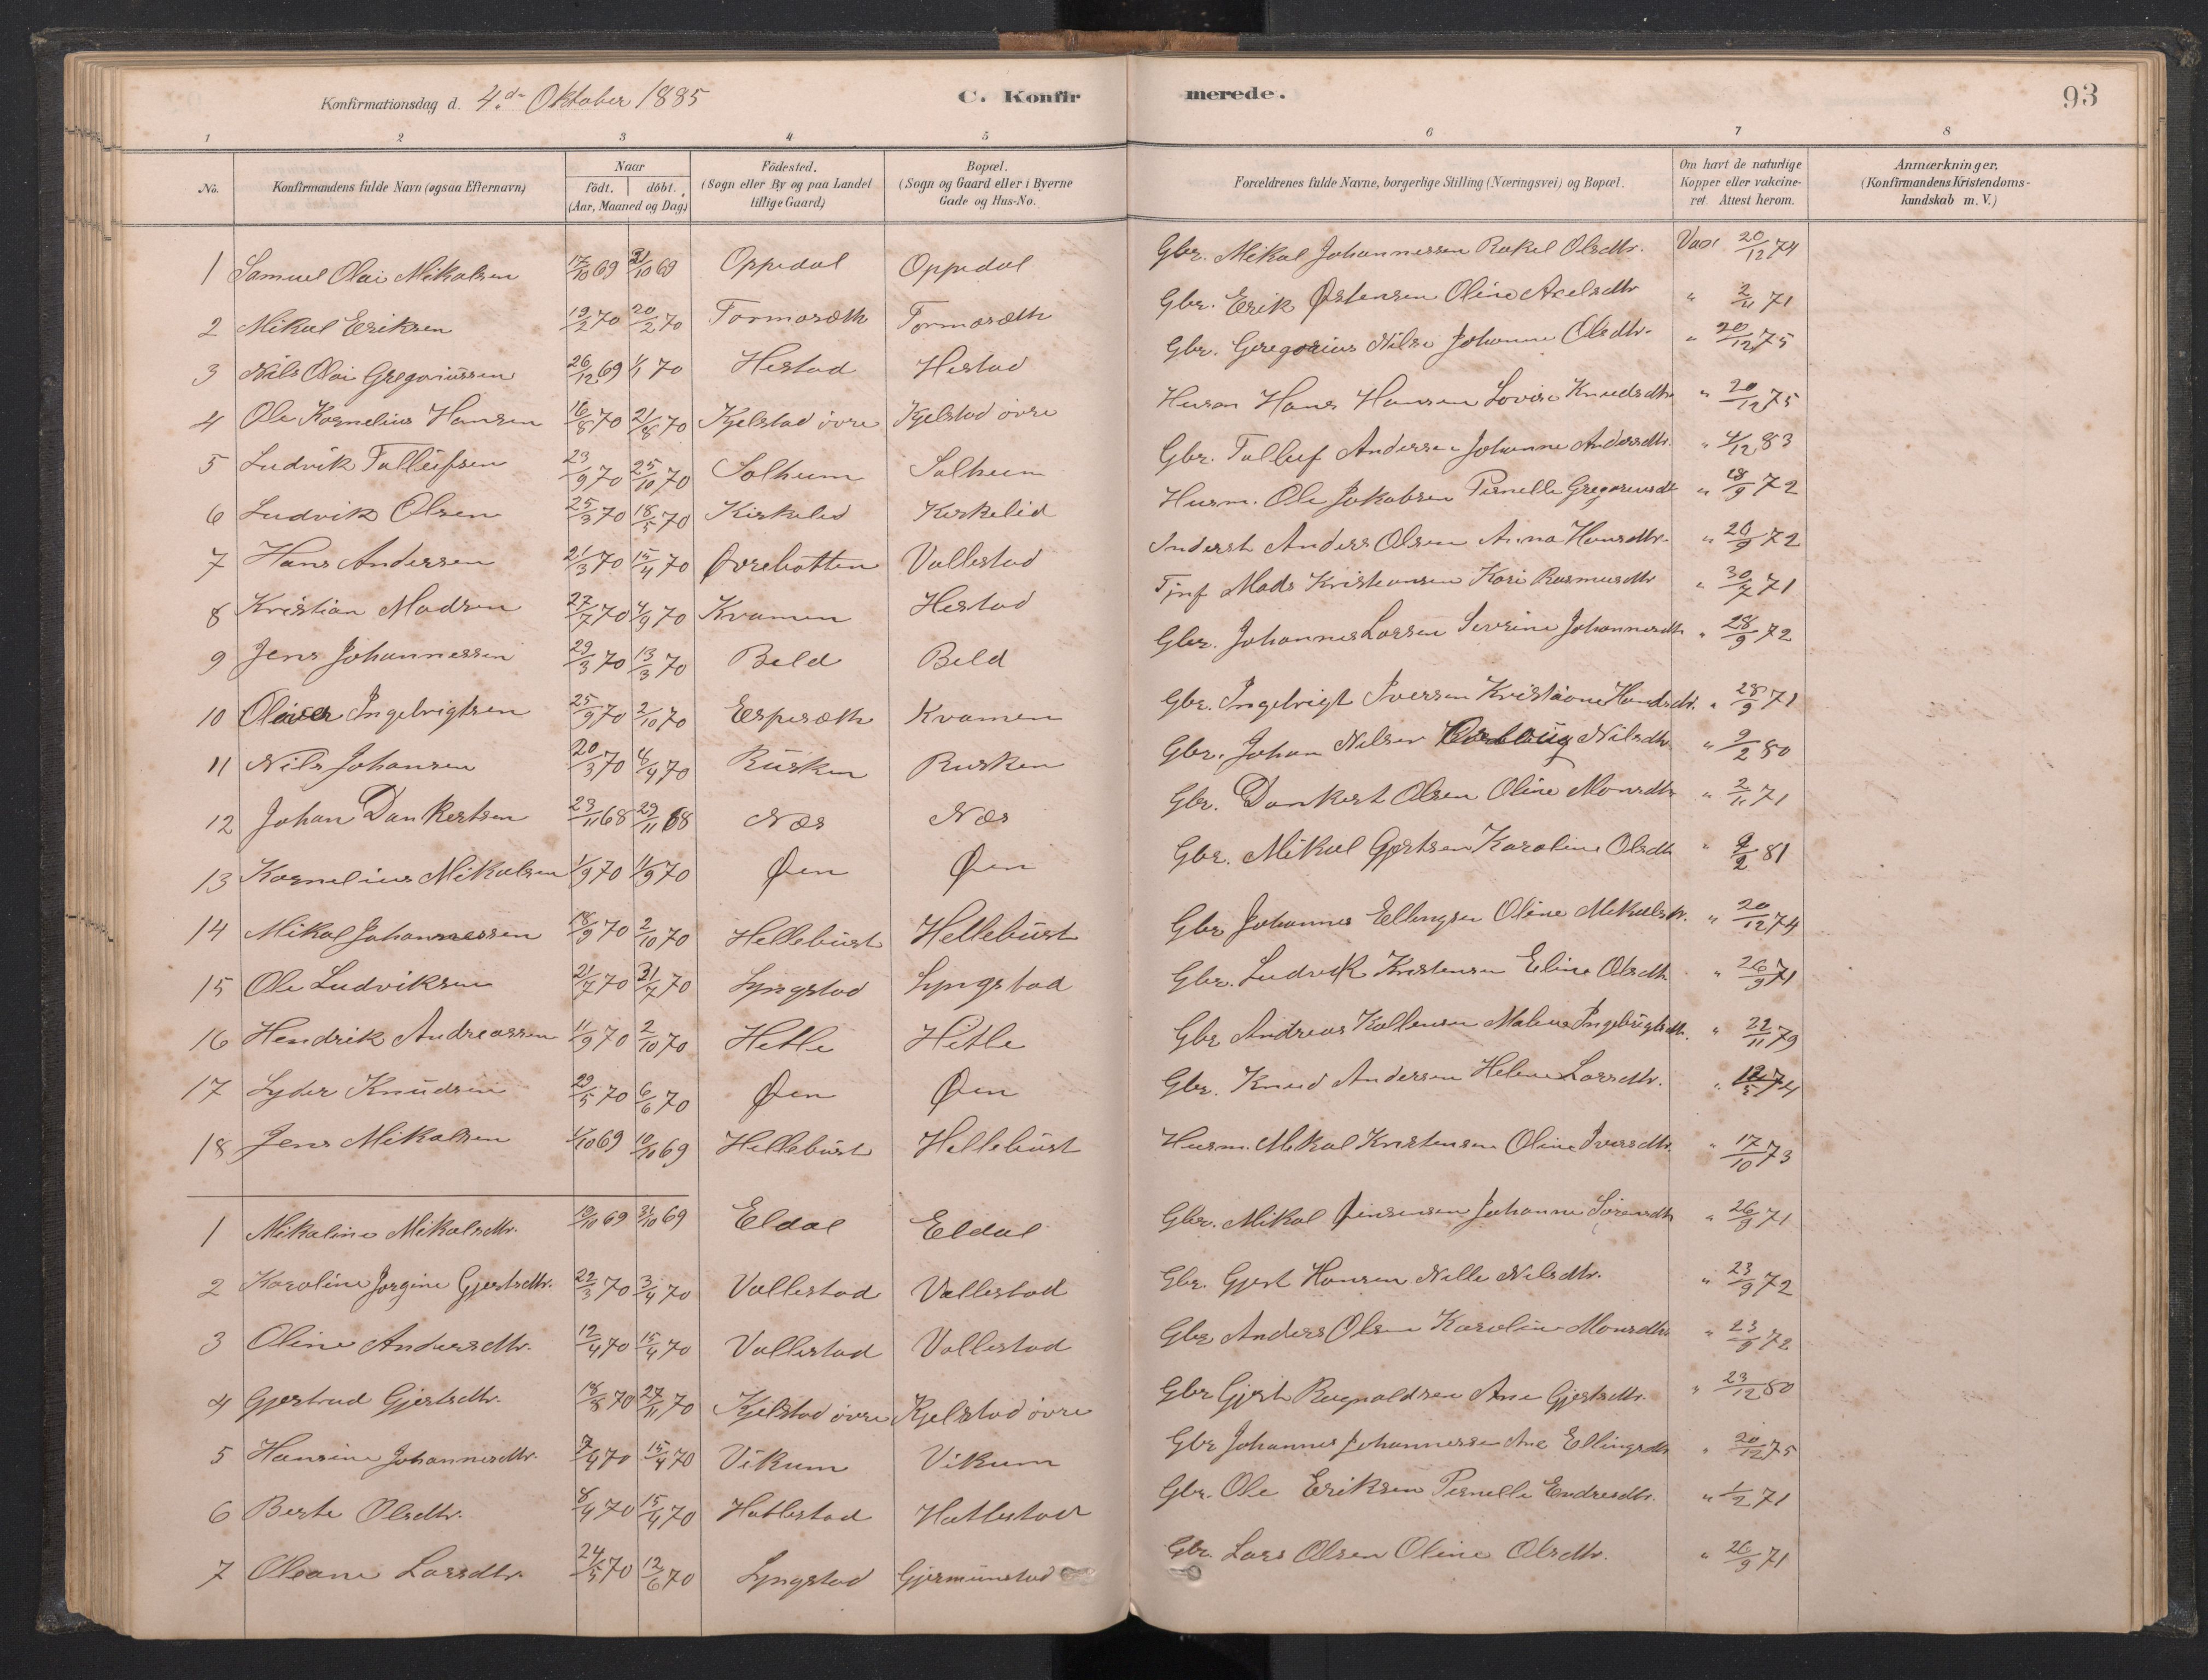 Konfirmationsdag d. 4.de Oktober 1885 C. Konfirmerede. 93
1 2 3 4 5 6 7 8
No. Konfirmandens fulde Navn (ogsaa Efternavn) Naar födt. döbt. (Aar, Maaned og Dag) Födested. (Sogn eller By og paa Landet tillige Gaard) Bopæl. (Sogn og Gaard eller i Byerne Gade og Hus-No. Forældrenes fulde Navne, borgerlige Stilling (Næringsvei) og Bopæl. Om havt de naturlige Kopper eller vakcineret. Attest herom. Anmærkninger, (Konfirmandens Kristendomskundskab m. V.)
1 Samuel Olai Mikalsen 17/10 69 31/10 69 Oppedal Oppedal Gbr. Mikal Johannessen Rakel Olsdtr. Vax 20/12 74
2 Mikal Eriksen 19/2 70 20/2 70 Tormosæth Tormosæth Gbr. Erik Østensen Oline Axelsdtr " 2/11 71
3 Nils Olai Gregoriussen 26/12 69 1/1 70 Hestad Hestad Gbr. Gregorius Nilse Johanne Olsdtr. " 20/12 75
4 Ole Kornelius Hansen 16/8 70 21/8 70 Kjelstad övre Kjelstad övre Husm Hans Hansen Lovise Knudsdtr " 20/12 75
5 Ludvik Tollefsen 23/9 70 25/10 70 Solheim Solheim Gbr. Tollef Andersen Johanne Andersdtr. " 4/12 83
6 Ludvik Olsen 25/3 70 18/5 70 Kirkelid Kirkelid Husm. Ole Jakobsen Pernelle Gregoriusdt " 18/9 72
7 Hans Andersen 21/3 70 15/4 70 Øvrebotten Vallestad Inderst Anders Olsen Anna Hansdtr. " 20/9 72
8 Kristian Madsen 27/7 70 4/9 70 Kvamen Hestad Mads Kristiansen Kari Rasmusdtr " 30/7 71
9 Jens Johannessen 29/3 70 13/3 70 Beld Beld Gbr. Johannes Larsen Severine Johannesdtr " 28/9 72
10 Oliver Ingebrigtsen 25/9 70 2/10 70 Espesæth Kvamen Gbr. Ingebrigt Iversen Kristiane Hansdtr. " 28/9 71
11 Nils Johansen 20/3 70 4/4 70 Rusken Rusken Gbr. Johan Nilsen Nilsdtr. " 9/2 80
12 Johan Dankertsen 23/11 68 29/11 68 Næs Næs Gbr. Dankert Olsen Oline Monsdtr " 2/11 71
13 Kornelius Mikalsen 1/9 70 11/9 70 Øen Øen Gbr. Mikal Gjertsen Karoline Olsdtr " 9/2 81
14 Mikal Johannessen 18/9 70 2/10 70 Hellebust Hellebust Gbr Johannes Ellingsen Oline Mikalsdtr. " 20/12 74
15 Ole Ludviksen 21/7 70 31/7 70 Lyngstad Lyngstad Gbr. Ludvik Kristensen Eline Olsdtr " 26/9 71
16 Hendrik Andreassen 11/9 70 2/10 70 Hetle Hetle Gbr Andreas Malene Ingebrigtsdtr. " 22/11 79
17 Lyder Knudsen 29/5 70 6/6 70 Øen Øen Gbr. Knud Andersen Helene Larsdtr. " 12/5 74
18 Jens Mikalsen 1/10 69 10/10 69 Hellebust Hellebust Husm. Mikal Kristensen Oline Iversdtr. " 17/10 73
1 Mikaline Mikalsdtr. 19/10 69 31/10 69 Eldal Eldal Gbr. Mikal Jensen Johanne Sörensdtr " 26/9 71
2 Karoline Jorgine Gjertsdtr. 22/3 70 3/4 70 Vallestad Vallestad Gbr. Gjert Hansen Nille Nilsdtr. " 23/9 72
3 Oline Andersdtr. 12/4 70 15/4 70 Vallestad Vallestad Gbr Anders Olsen Karoline Monsdtr " 23/9 72
4 Gjertrud Gjertsdtr. 18/8 70 27/11 70 Kjelstad övre Kjelstad övre Gbr Gjert Rognaldsen Ane Gjertsdtr. " 23/12 80
5 Hansine Johannesdtr. 7/4 70 15/4 70 Vikum Vikum Gbr Johannes Johannessen Ane Ellingsdtr " 20/12 75
6 Berte Olsdtr. 8/4 70 15/4 70 Hatlestad Hatlestad Gbr. Ole Eriksen Pernelle Endresdtr. " 1/2 71
7 Oleane Larsdtr. 24/5 70 12/6 70 Lyngstad Gjermunstad Gbr. Lars Olsen Oline Olsdtr. " 26/9 71